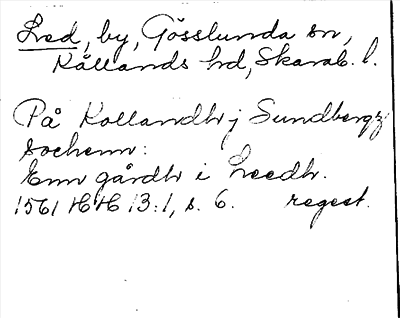 Led, by, Gösslunda sn,
Kållands hd, Skarab. l.
På Kollandh j Sundbergz
sochenn:
Enn gårdh i Leedh.
1561 HH 13:1, s. 6. regest.